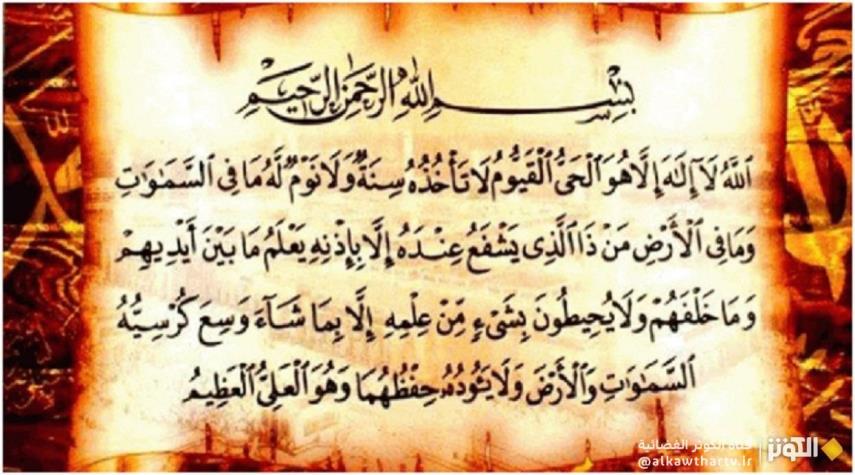 بِسْمِ اللهِ الرَّحْمٰنِ الرَّحِيْمِ
ٱللَّهُ لَآ إِلَٰهَ إِلَّا هُوَ ٱلْحَىُّ ٱلْقَيُّومُ لَا تَأْخُذُهُۥ سِنَةٌ وَلَا نَوْمٌ لَّهُۥ مَا فِى ٱلسَّمَٰوَٰتِ
وَمَا فِى ٱلْأَرْضِ مَن ذَا ٱلَّذِى يَشْفَعُ عِندَهُۥٓ إِلَّا بِإِذْنِهِۦ يَعْلَمُ مَا بَيْنَ أَيْدِيهِمْ
وَمَا خَلْفَهُمْ وَلَا يُحِيطُونَ بِشَىْءٍ مِّنْ عِلْمِهِۦٓ إِلَّا بِمَا شَآءَ وَسِعَ كُرْسِيُّهُ
ٱلسَّمَٰوَٰتِ وَٱلْأَرْضَ وَلَا يَـُٔودُهُۥ حِفْظُهُمَا وَهُوَ ٱلْعَلِىُّ ٱلْعَظِيمُ
قناة الكوثر الفضائية
@alkawthartv.ir
الكوثر